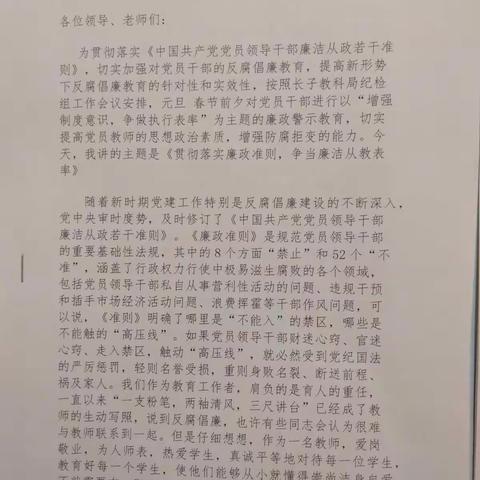 各位领导、老师们：
为贯彻落实《中国共产党党员领导干部廉洁从政若干准
则》，切实加强对党员干部的反腐倡廉教育，提高新形势
下反腐倡廉教育的针对性和实效性，按照长子教科局纪检
组工作会议安排，元旦 春节前夕对党员干部进行以“增强
制度意识，争做执行表率”为主题的廉政警示教育，切实
提高党员教师的思想政治素质，增强防腐拒变的能力。今
天，我讲的主题是《贯彻落实廉政准则，争当廉洁从教表
率》
随着新时期党建工作特别是反腐倡廉建设的不断深入，
党中央审时度势，及时修订了《中国共产党党员领导干部
廉洁从政若干准则》。《廉政准则》是规范党员领导干部
的重要基础性法规，其中的8个方面“禁止”和52个“不
准”，涵盖了行政权力行使中极易滋生腐败的各个领域，
包括党员领导干部私自从事营利性活动的问题、违规干预
和插手市场经济活动问题、浪费挥霍等干部作风问题，可
以说，《准则》明确了哪里是“不能入”的禁区，哪些是
不能触的“高压线”。如果党员领导干部财迷心窍、官迷
心窍、走入禁区，触动“高压线”，就必然受到党纪国法
的严厉惩罚，轻则名誉受损，重则身败名裂、断送前程、
祸及家人。我们作为教育工作者，肩负的是育人的重任，
一直以来“一支粉笔，两袖清风，三尺讲台”已经成了教
师的生动写照，说到反腐倡廉，也许有些同志会认为很难
与教师联系到一起。但是仔细想想，作为一名教师，爱岗
敬业，为人师表，热爱学生，真诚平等地对待每一位学生，
教育好每一个学生，使他们能够从小就懂得崇尚洁身自爱